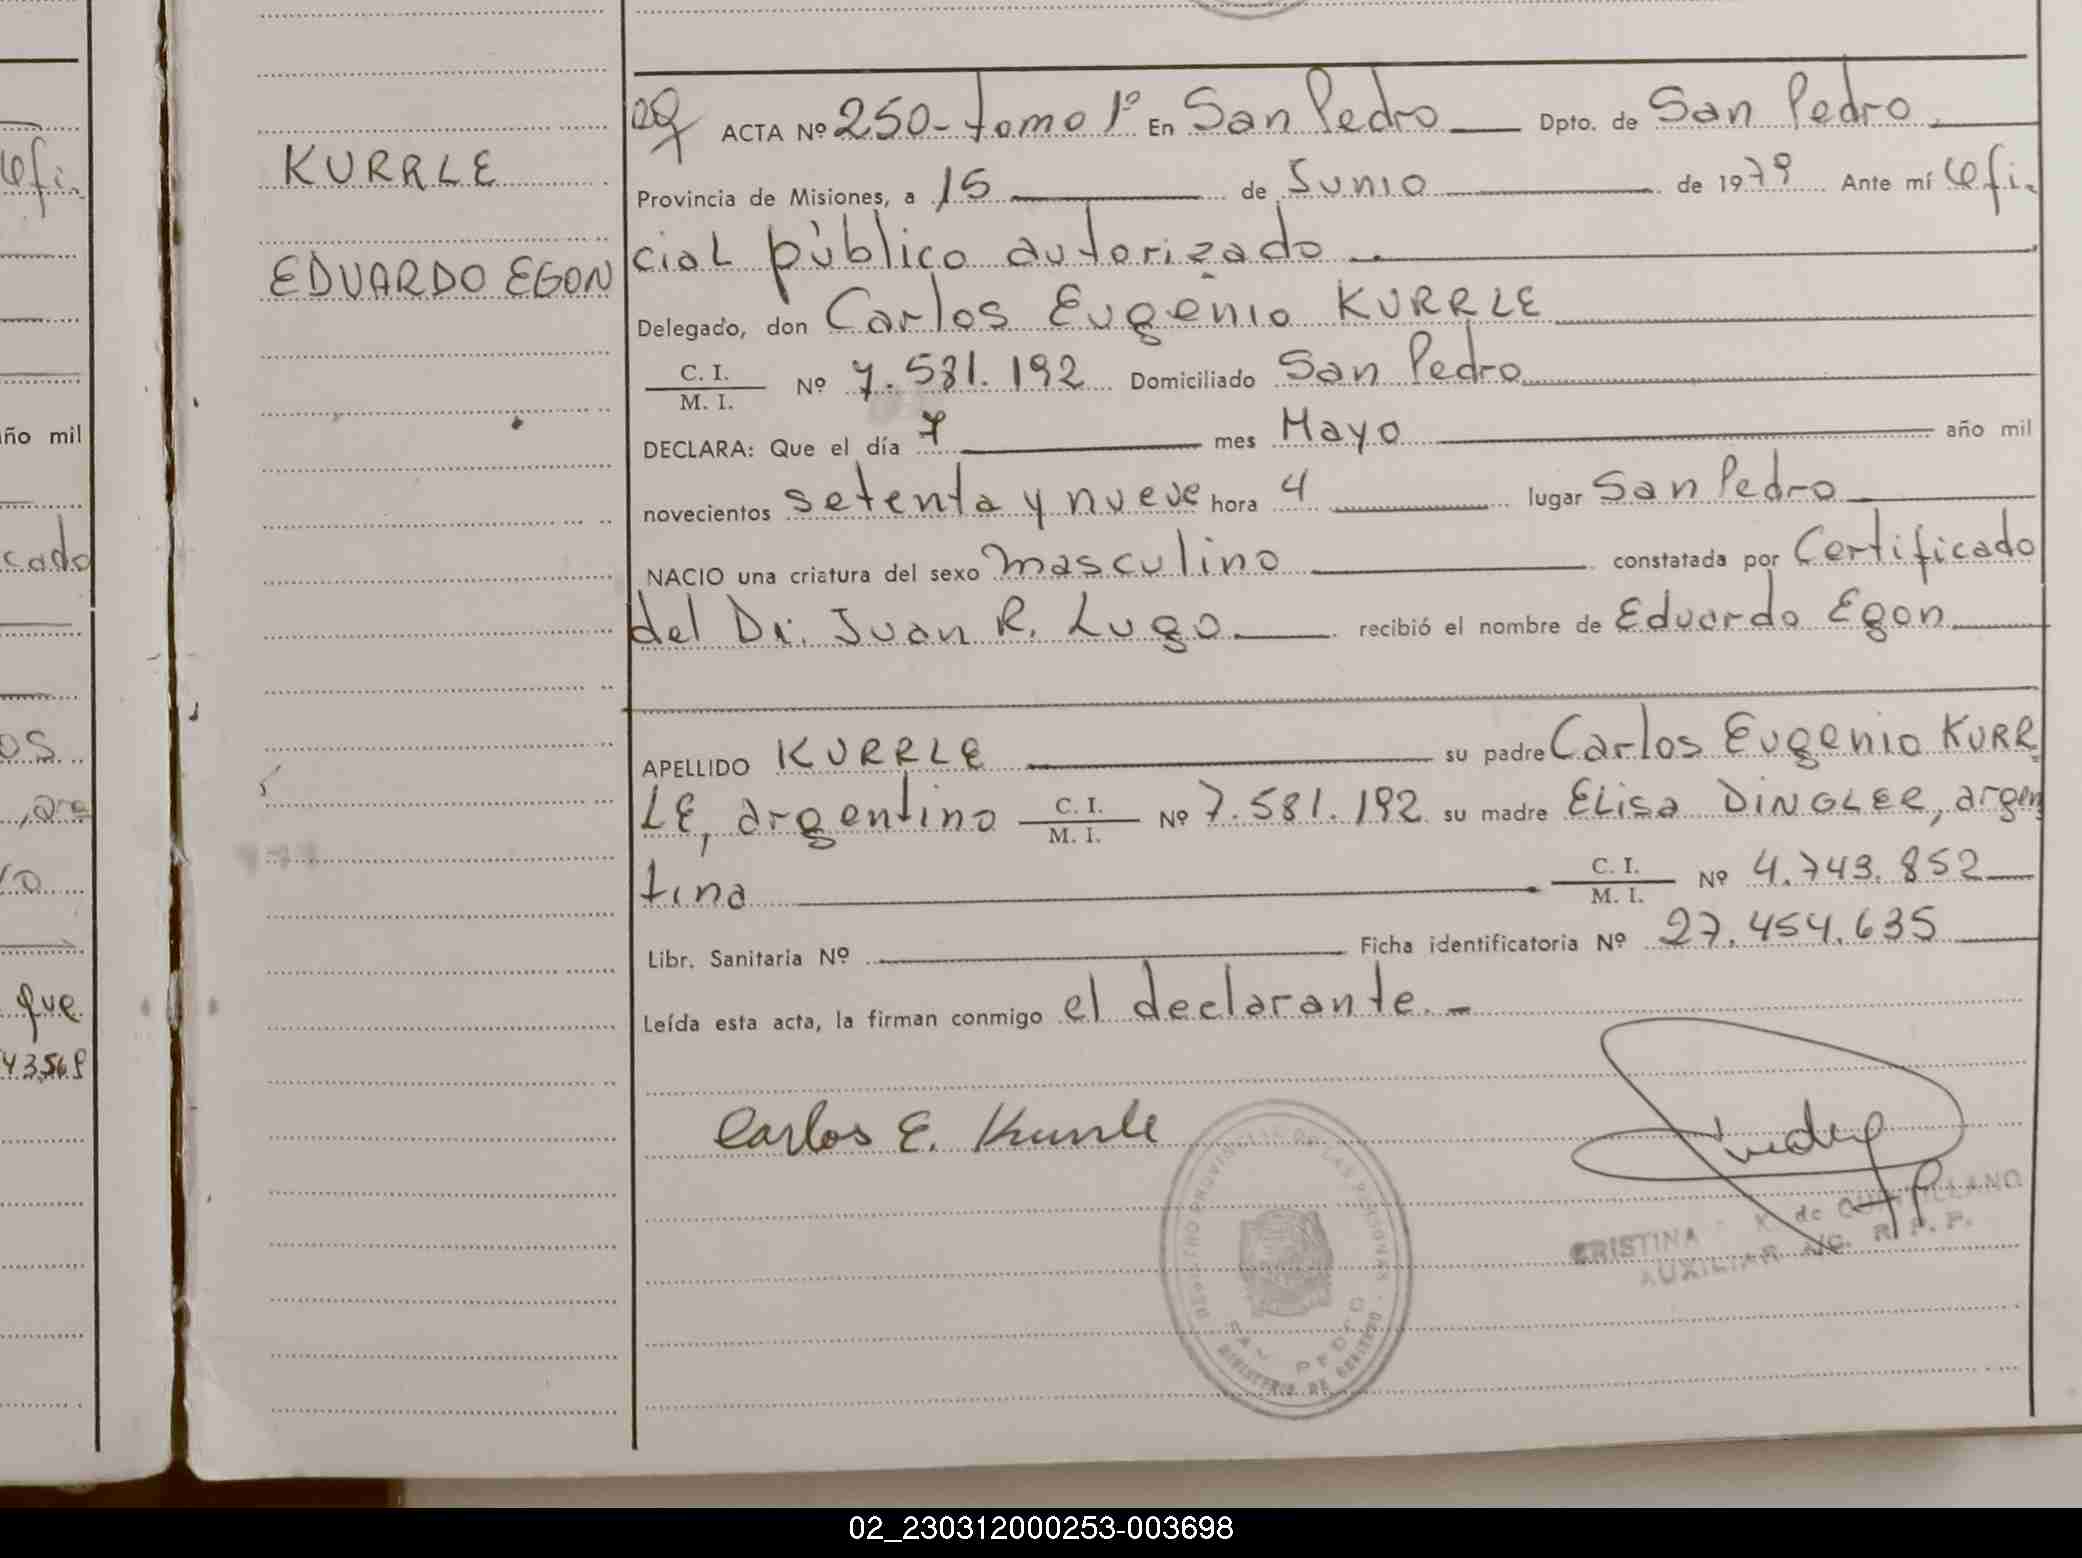 ACTA Nº 250- tomo 1º En San Pedro Dpto. de San Pedro
KURRLE
Provincia de Misiones, a 15 de Junio de 1979 Ante mí Ofi-
EDUARDO EGON
cial público autorizado
Delegado, don Carlos Eugenio KURRLE
C. I.
M. I.
Nº 7.581.192 Domiciliado San Pedro
DECLARA: Que el día 7 mes Mayo año mil
novecientos setenta y nueve hora 4 lugar San Pedro
NACIO una criatura del sexo masculino constatada por Certificado
del Dr. Juan R. Lugo recibió el nombre de Eduardo Egon
APELLIDO KURRLE su padre Carlos Eugenio KURR
LE, argentino C. I. M. I. Nº 7.581.192 su madre ELisa DINGLER, argen
tina C. I. M. I. Nº 4.743.852
Libr. Sanitaria Nº Ficha identificatoria Nº 27.454.635
Leída esta acta, la firman conmigo el declarante.-
Carlos E. Kurrle
REGISTRO PROVINCIAL DE LAS PERSONAS
SAN PEDRO
MINISTERIO DE GOBIERNO
CRISTINA K. de
AUXILIAR R. P. P.
ño mil
cado
que
02_230312000253-003698